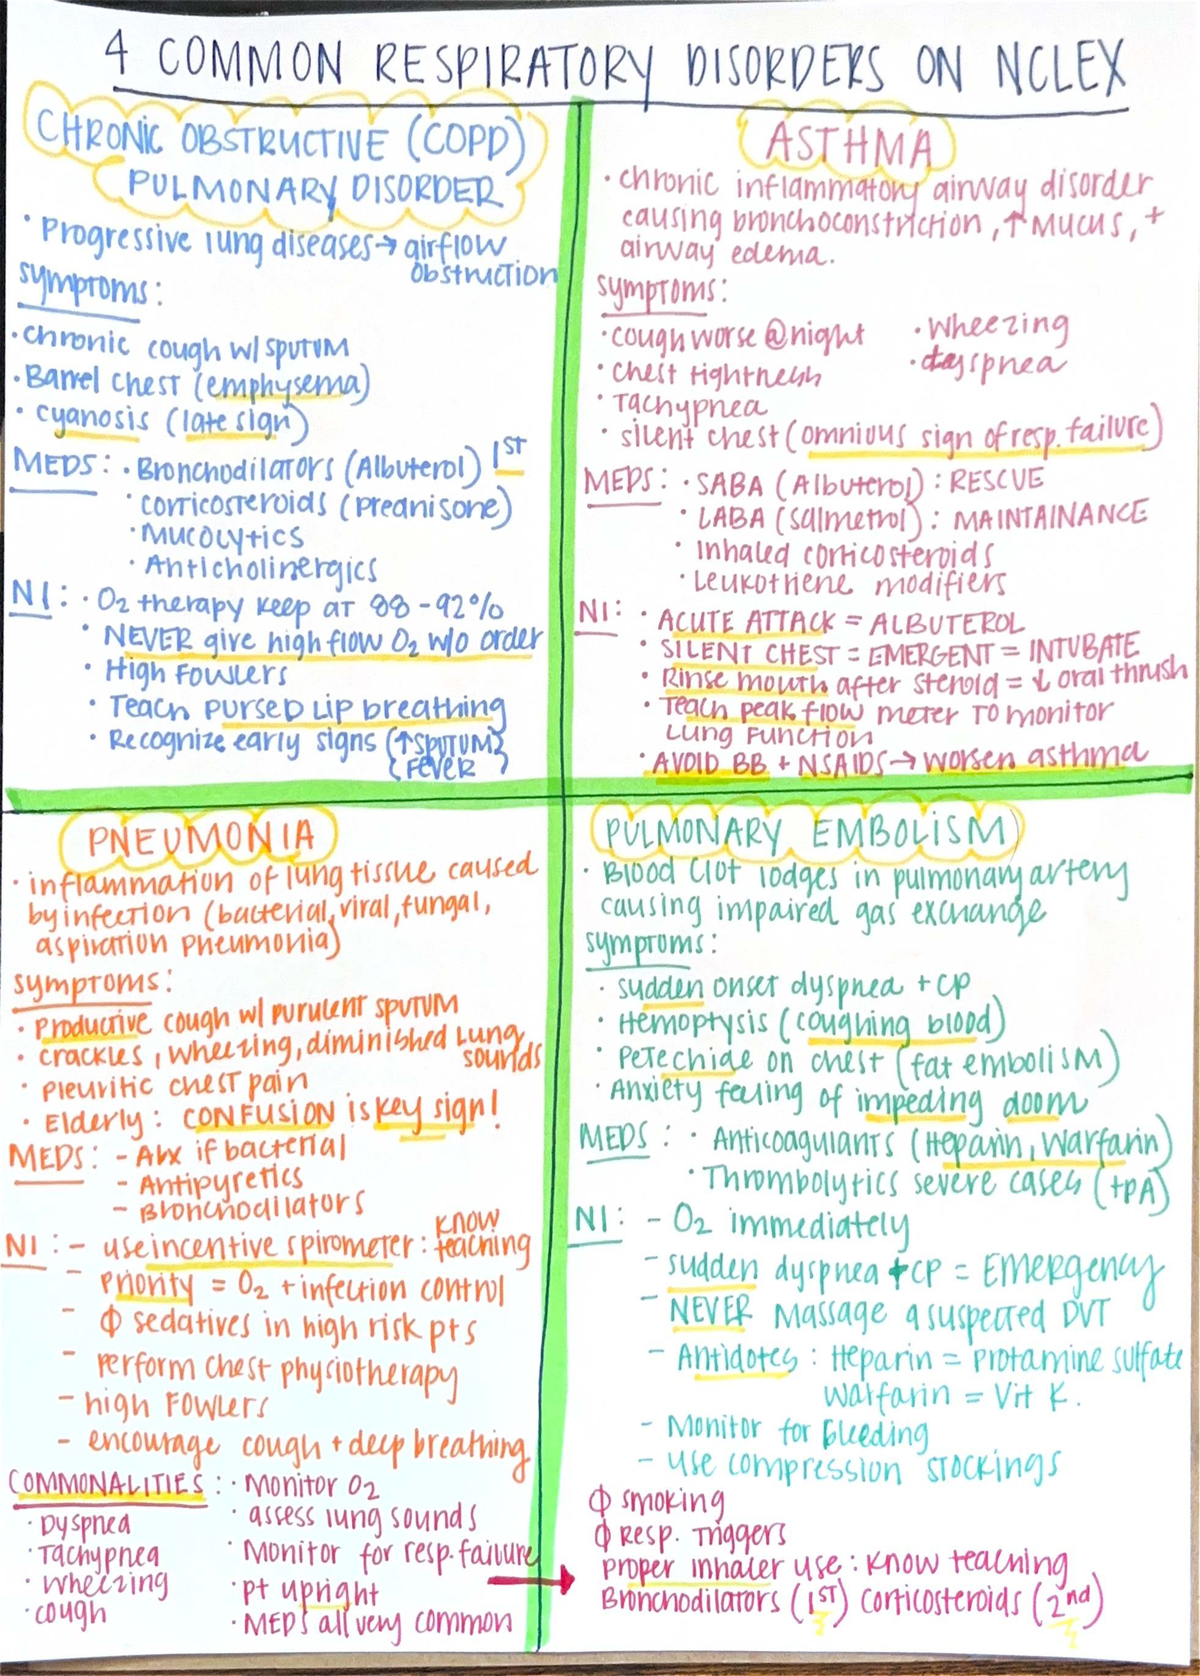 4 COMMON RESPIRATORY DISORDERS ON NCLEX
CHRONIC OBSTRUCTIVE (COPD)
PULMONARY DISORDER
• Progressive lung diseases → airflow
obstruction
symptoms:
• chronic cough w/ sputum
• Barrel chest (emphysema)
• cyanosis (late sign)
MEDS: • Bronchodilators (Albuterol) 1ST
• corticosteroids (preanisone)
• Mucolytics
• Anticholinergics
NI: • O2 therapy keep at 88-92%
• NEVER give high flow O2 w/o order
• High Fowlers
• Teach pursed lip breathing
• Recognize early signs (↑sputum)
(fever
ASTHMA
• chronic inflammatory airway disorder
causing bronchoconstriction, ↑ mucus, +
airway edema.
symptoms:
• cough worse @ night • wheezing
• chest tightness • dyspnea
• Tachypnea
• silent chest (omnious sign of resp. failure)
MEDS: • SABA (Albuterol): RESCUE
• LABA (salmetrol): MAINTAINANCE
• Inhaled corticosteroids
• Leukotriene modifiers
NI: • ACUTE ATTACK = ALBUTEROL
• SILENT CHEST = EMERGENT = INTUBATE
• Rinse mouth after steroid = ↓ oral thrush
• Teach peak flow meter to monitor
lung function
• AVOID BB + NSAIDS → worsen asthma
PNEUMONIA
• inflammation of lung tissue caused
by infection (bacterial, viral, fungal,
aspiration pneumonia)
symptoms:
• Productive cough w/ purulent sputum
• crackles, wheezing, diminished lung
sounds
• pleuritic chest pain
• Elderly: CONFUSION is key sign!
MEDS: - Abx if bacterial
- Antipyretics
- Bronchodilators
NI: - use incentive spirometer: know
teaching
- Priority = O2 + infection control
- ϕ sedatives in high risk pts
- perform chest physiotherapy
- high Fowlers
- encourage cough + deep breathing
PULMONARY EMBOLISM
• Blood clot lodges in pulmonary artery
causing impaired gas exchange
symptoms:
• sudden onset dyspnea + CP
• Hemoptysis (coughing blood)
• Petechide on chest (fat embolism)
• Anxiety feeling of impeding doom
MEDS: • Anticoagulants (Heparin, Warfarin)
• Thrombolytics severe cases (tPA)
NI: - O2 immediately
- sudden dyspnea + CP = Emergency
- NEVER Massage a suspected DVT
- Antidotes: Heparin = protamine sulfate
Warfarin = Vit K.
- Monitor for bleeding
- use compression stockings
COMMONALITIES:
• Dyspnea
• Tachypnea
• wheezing
• cough
• Monitor O2
• assess lung sounds
• Monitor for resp. failure
• pt upright
• MEDS all very common
ϕ smoking
ϕ Resp. Triggers
proper inhaler use: know teaching
Bronchodilators (1ST) Corticosteroids (2nd)